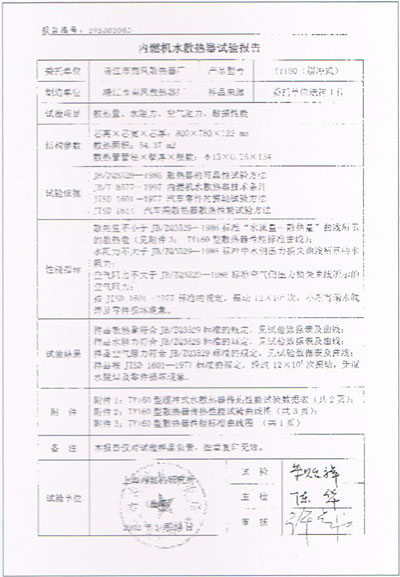 内燃机水散热器试验报告
委托单位 靖江市南风散热器厂 产品型号 TY160（缓冲式）
制造单位 靖江市南风散热器厂 样品来源 委托单位送样1台
试验项目 散热量、水阻力、空气阻力、耐振性能
结构参数
芯高×芯宽×芯厚：800×780×122 mm
散热面积：54.37 m2
试验依据
JB/ZQ5329—1986 散热器的可靠性试验方法
JB/T 8577—1997 内燃机水散热器技术条件
JISD 1601—1977 汽车零件的振动试验方法
JISD 1614 汽车用散热器散热性能试验方法
性能指标
散热量不小于 JB/ZQ5329—1986 标准“水流量—散热量”曲线所示
的散热量（见附件3：TY160型散热器性能标准曲线）；
水阻力不大于 JB/ZQ5329—1986 标准中水侧压力损失曲线所示的水
阻力；
空气阻力不大于 JB/ZQ5329—1986 标准空气侧压力损失曲线所示的
空气阻力；
按 JISD 1601—1977 标准的规定，振动 12×10⁵ 次，不应有漏水脱
焊及零件损坏现象。
试验结果
样品散热量符合 JB/ZQ5329 标准的规定，见试验数据表及曲线；
样品水阻力符合 JB/ZQ5329 标准的规定，见试验数据表及曲线；
样品空气阻力符合 JB/ZQ5329 标准的规定，见试验数据表及曲线；
样品按 JISD 1601—1977 标准的规定，经过 12×10⁵ 次振动，无漏
水脱焊及零件损坏现象。
附 件
附件1：TY160型缓冲式水散热器传热性能试验数据表（共2页）；
附件2：TY160型散热器传热性能试验曲线图（共3页）；
附件3：TY160型散热器性能标准曲线图 （共1页）
备 注 本报告仅对试验样品负责，图章复印无效。
试验单位
试 验
主 检 陈华
审 核